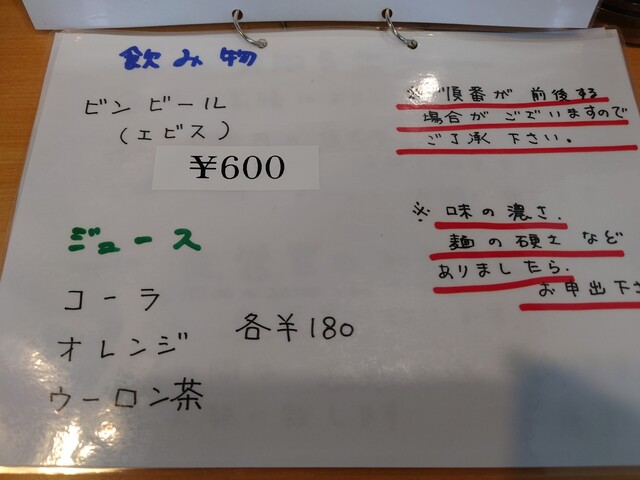 飲み物
ビン ビール
(エビス)
¥600
ジュース
コーラ
オレンジ
ウーロン茶
各¥180
※ 順番が 前後する
場合が ございますので
ご了承 下さい。
※ 味の濃さ、
麺の硬さ など
ありましたら、
お申出下さ